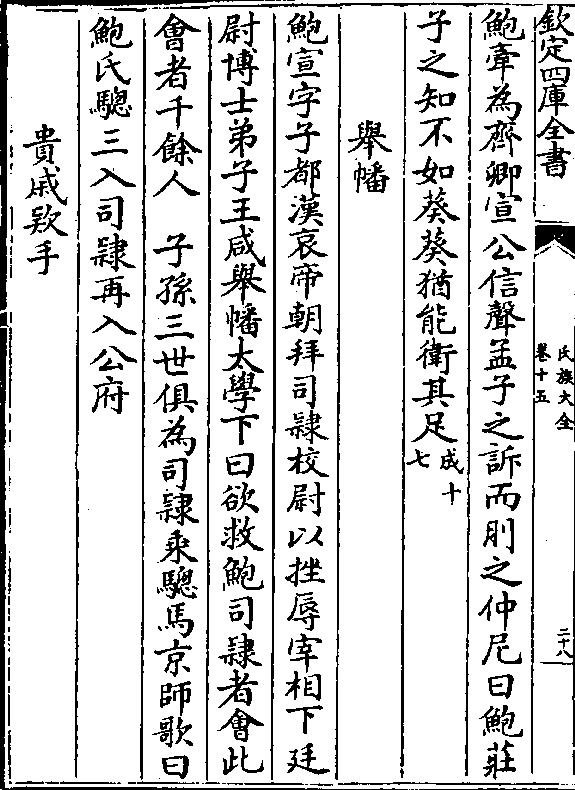 欽定四庫全書
氏族大全
卷十五
二十八
鮑牽為齊卿宣公信聲孟子之訴而刖之仲尼曰鮑莊
子之知不如葵葵猶能衛其足成十七
舉幡
鮑宣字子都漢哀帝朝拜司隸校尉以挫辱宰相下廷
尉博士弟子王咸舉幡太學下曰欲救鮑司隸者會此
會者千餘人 子孫三世俱為司隸乘驄馬京師歌曰
鮑氏驄三入司隸再入公府
貴戚歛手